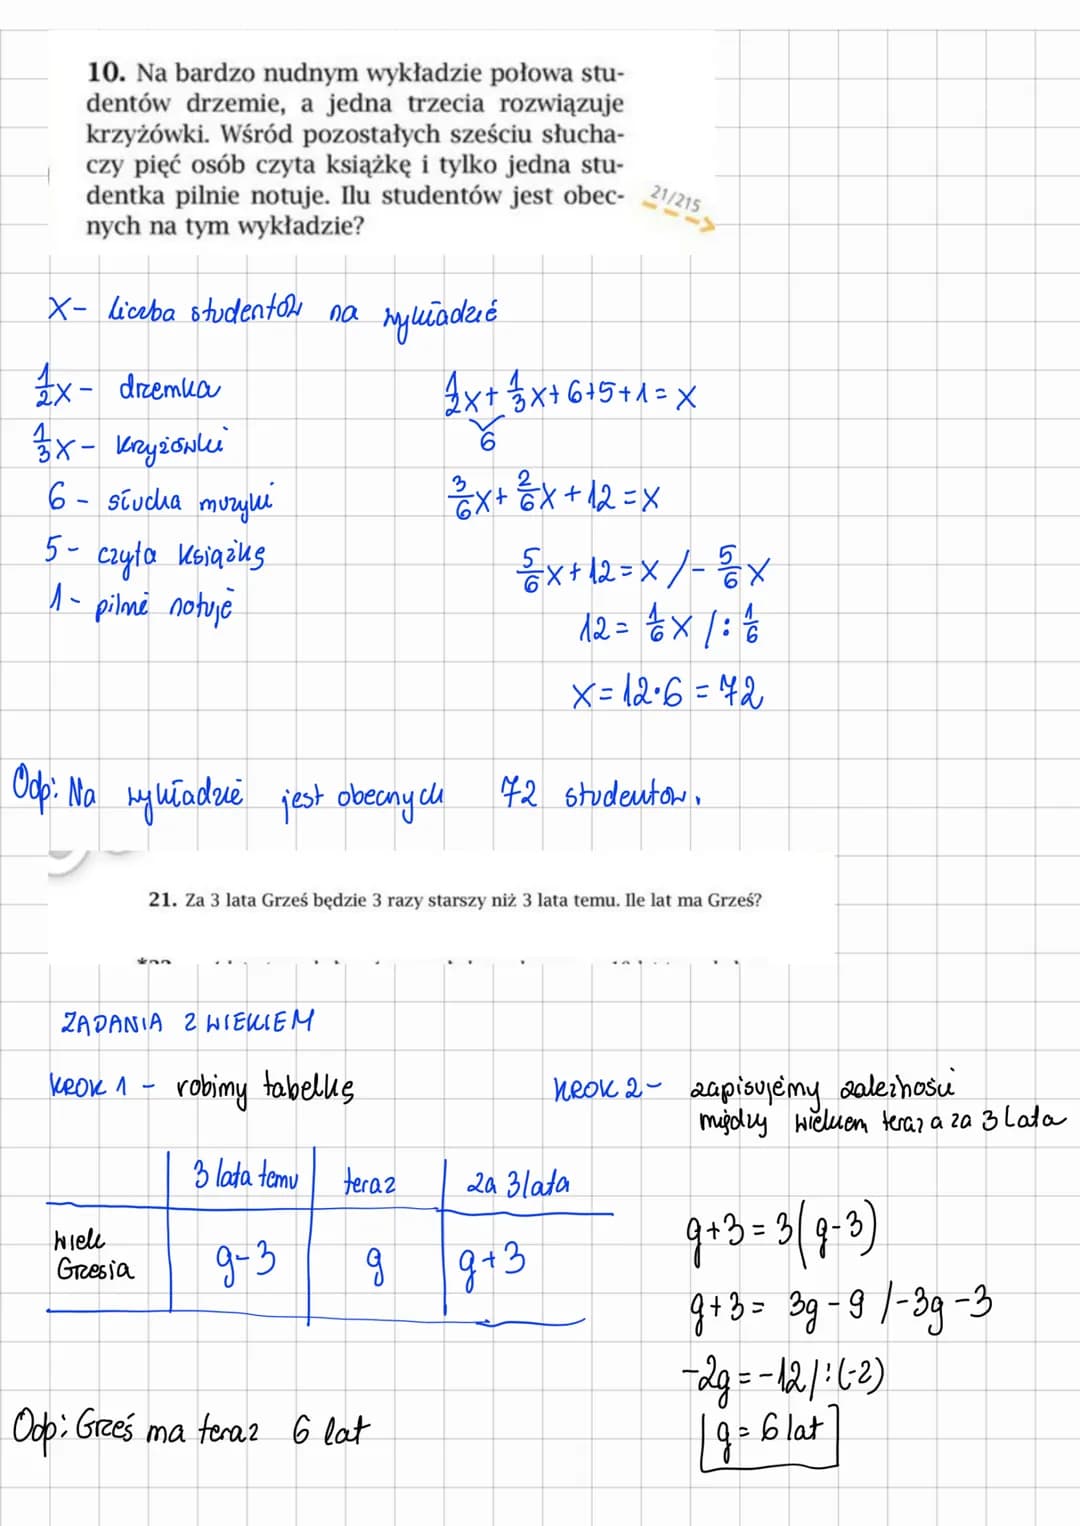 10. Na bardzo nudnym wykładzie połowa stu-
dentów drzemie, a jedna trzecia rozwiązuje
krzyżówki. Wśród pozostałych sześciu słucha-
czy pięć osób czyta książkę i tylko jedna stu-
dentka pilnie notuje. Ilu studentów jest obec-
nych na tym wykładzie?
21/215
X- liczba studentów na wykładzie
1/2x - drzemka
1/3x - krzyżówki
6 - słucha muzyki
5 - czyta książkę
1 - pilnie notuje
1/2x + 1/3x + 6+5+1 = x
6
3/6x + 2/6x + 12 = x
5/6x + 12 = x /- 5/6x
12 = 1/6x /: 1/6
x = 12·6 = 72
Odp: Na wykładzie jest obecnych 72 studentów.
21. Za 3 lata Grześ będzie 3 razy starszy niż 3 lata temu. Ile lat ma Grześ?
ZADANIA Z WIEKIEM
KROK 1 - robimy tabelkę
3 lata temu teraz za 3 lata
wiek
Grzesia
g-3 g g+3
KROK 2- zapisujemy zależności
między wiekiem teraz a za 3 lata
g+3 = 3(g-3)
g+3 = 3g - 9 /-3g -3
-2g = -12 /:(-2)
g = 6 lat
Odp: Grześ ma teraz 6 lat